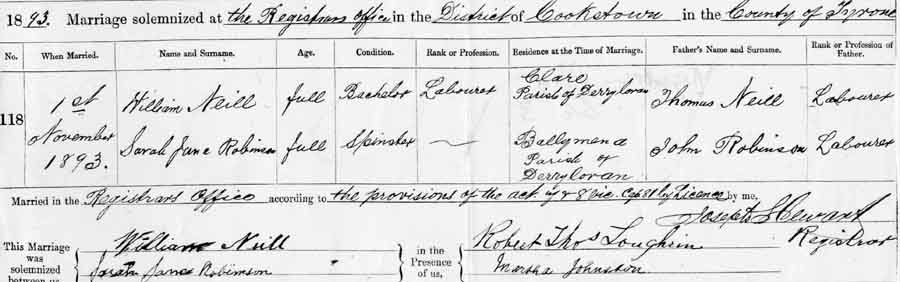 1893. Marriage solemnized at the Registrars Office in the District of Cookstown in the County of Tyrone
No. When Married. Name and Surname. Age. Condition. Rank or Profession. Residence at the Time of Marriage. Father's Name and Surname. Rank or Profession of Father.
118 1st November 1893. William Neill full Bachelor Labourer Clare Parish of Derryloran Thomas Neill Labourer
Sarah Jane Robinson full Spinster — Ballymena Parish of Derryloran John Robinson Labourer
Married in the Registrars Office according to the provisions of the act 7 & 8 Vic. Cap 81 by Licence by me,
Joseph Stewart
Registrar
This Marriage was solemnized between us, William Neill Sarah Jane Robinson in the Presence of us, Robert Thos Loughrin Martha Johnston